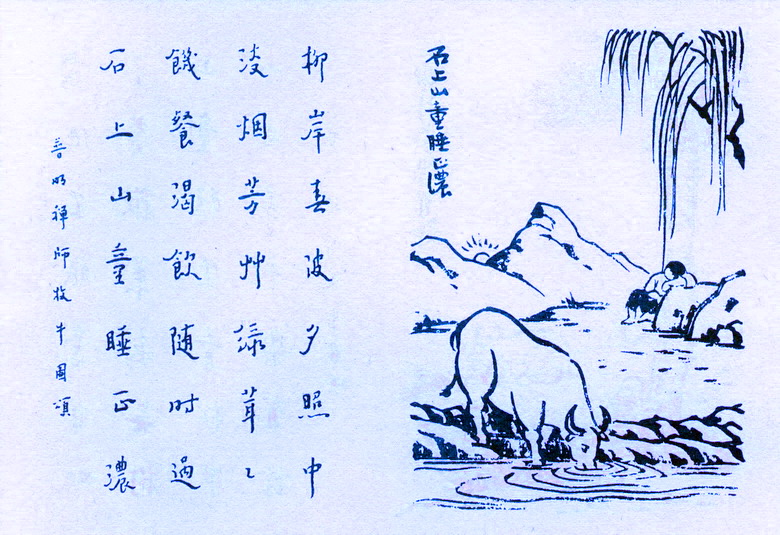 石上山童睡正濃
柳岸春波夕照中
淡烟芳艸綠茸々
饑餐渴飲随时過
石上山童睡正濃
普明禪師牧牛圖頌